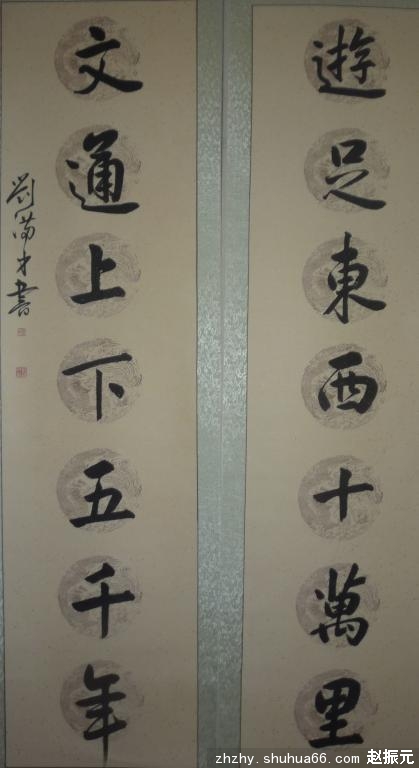 遊足東西十萬里
文通上下五千年
劉滿才書
zhzhy.shuhua66.com 赵振元